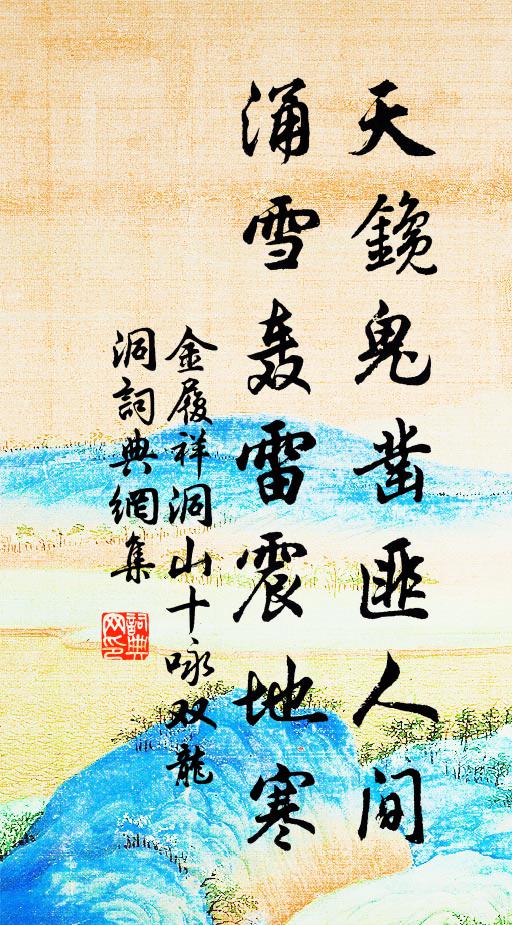 天鑱鬼凿匪人间
涌雪轰雷震地寒
金履祥洞山十咏双龍
洞詞典網集
詞典
网印